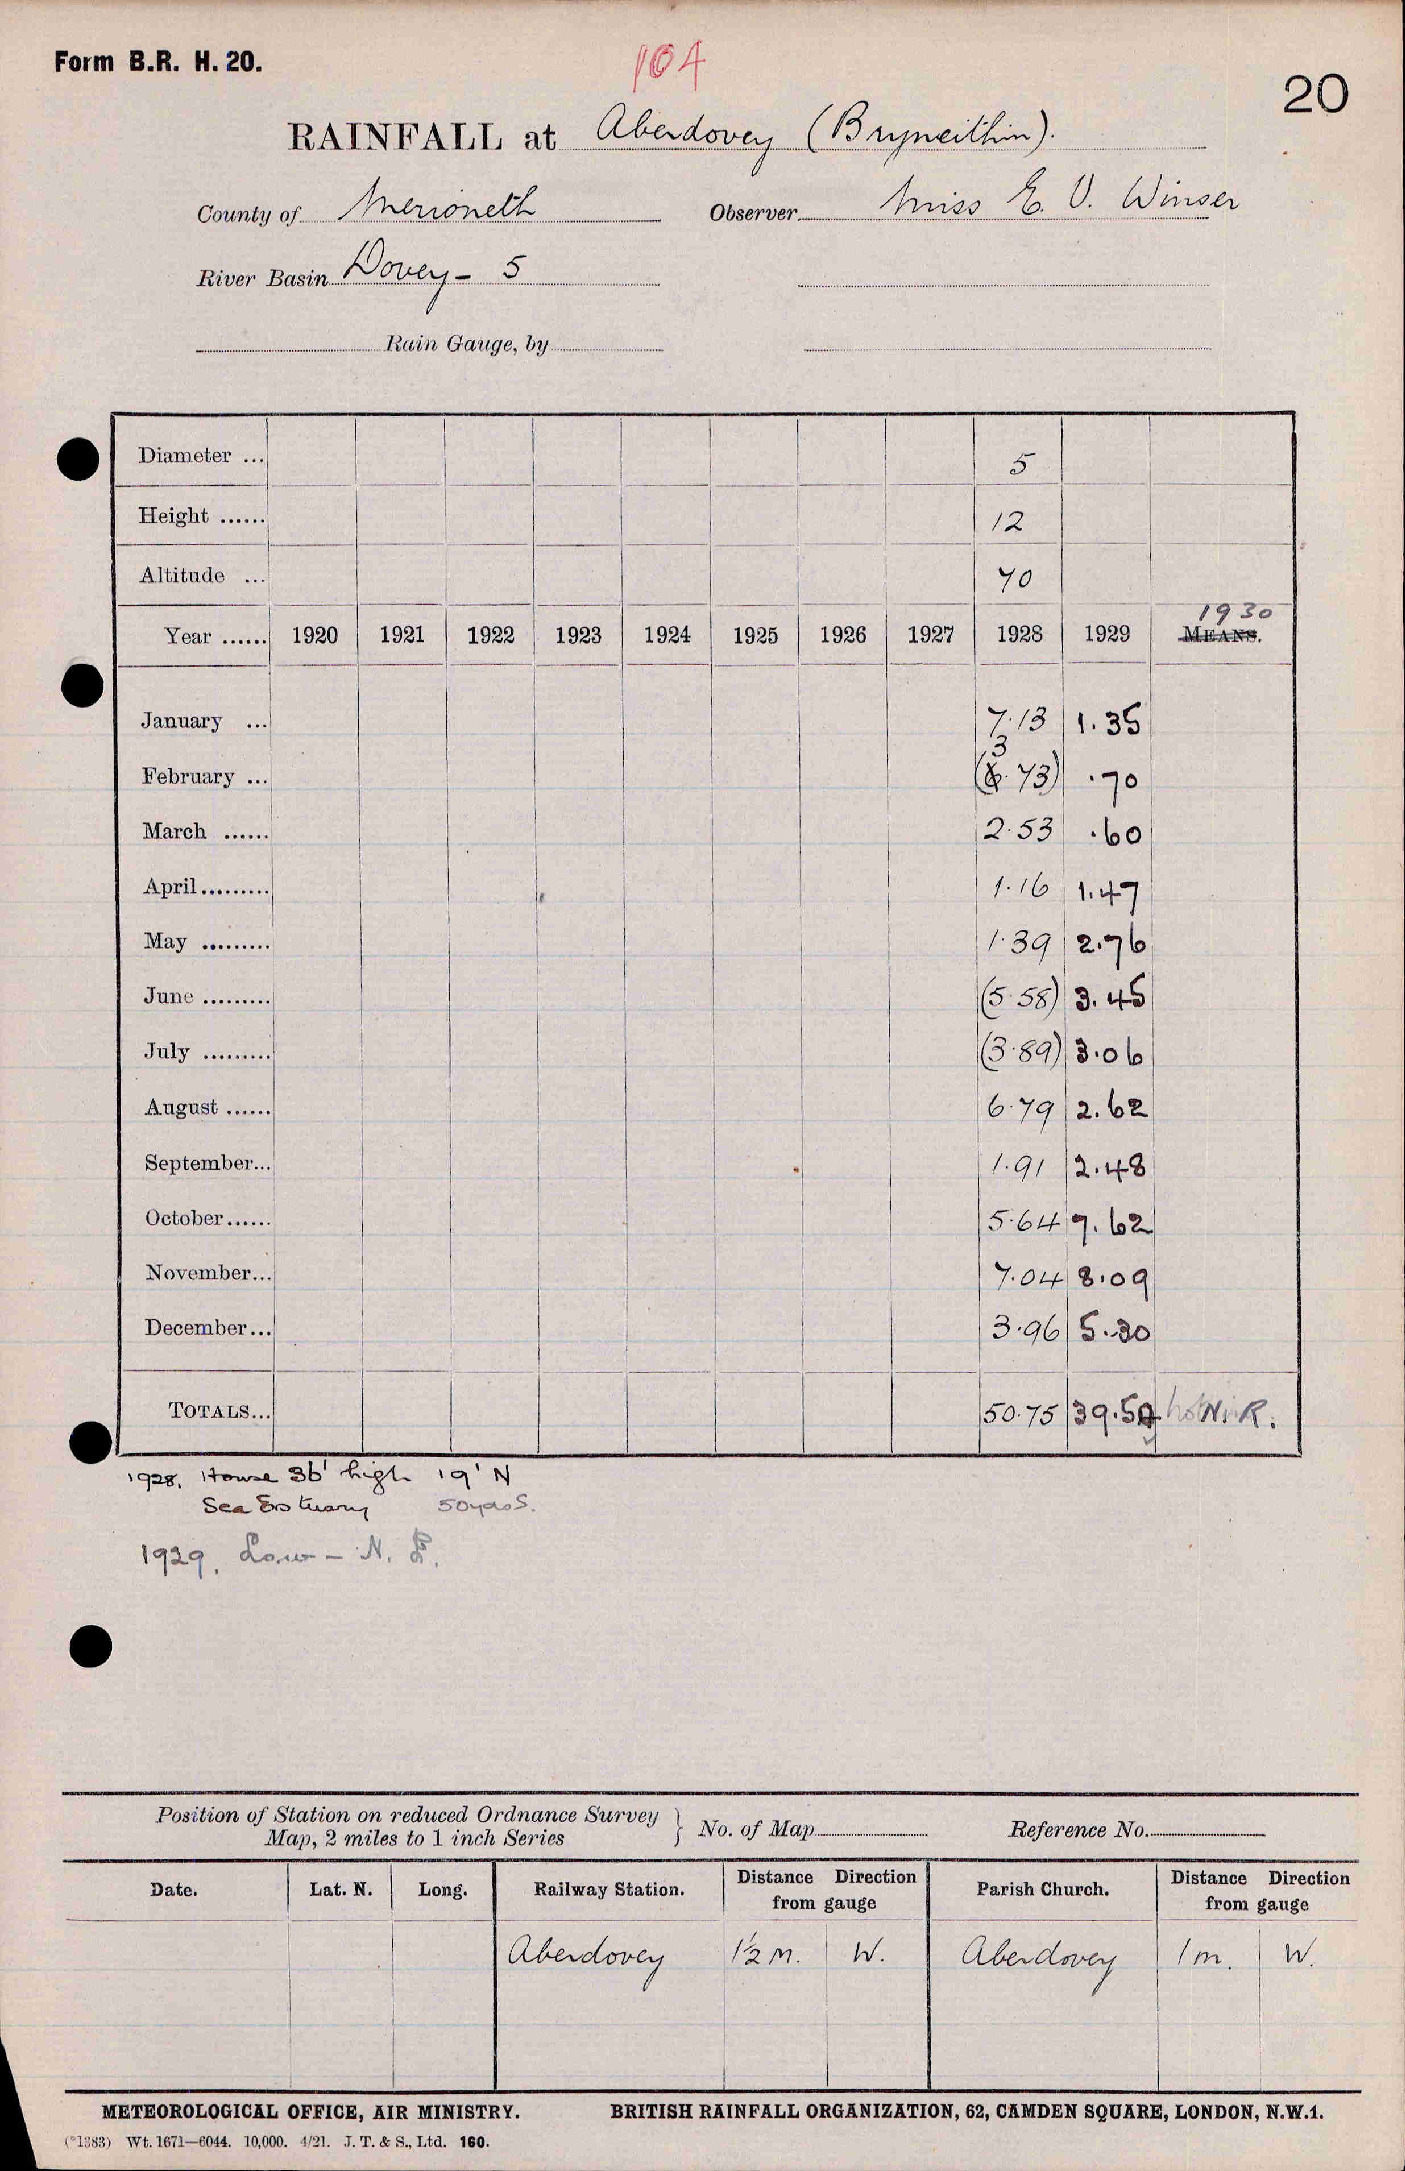 Form B.R. H. 20.
104
20
RAINFALL at Aberdovey (Bryneithin).
County of Merioneth Observer Miss E. V. Winser
River Basin Dovey - 5
Rain Gauge, by
Diameter ... 5
Height ...... 12
Altitude ... 70
1930
Year ...... 1920 1921 1922 1923 1924 1925 1926 1927 1928 1929 MEANS.
January ... 7.13 1.35
3
February ... (6.73) .70
March ...... 2.53 .60
April......... 1.16 1.47
May ......... 1.39 2.76
June ......... (5.58) 3.45
July ......... (3.89) 3.06
August ...... 6.79 2.62
September... 1.91 2.48
October...... 5.64 7.62
November... 7.04 8.09
December... 3.96 5.30
TOTALS... 50.75 39.50 N. R.
1928. House 36' high 19' N
Sea Estuary 50yds S.
1929. Low - N. E.
Position of Station on reduced Ordnance Survey
Map, 2 miles to 1 inch Series } No. of Map Reference No.
Date. Lat. N. Long. Railway Station. Distance Direction from gauge Parish Church. Distance Direction from gauge
Aberdovey 1½ m. W. Aberdovey 1 m. W.
METEOROLOGICAL OFFICE, AIR MINISTRY. BRITISH RAINFALL ORGANIZATION, 62, CAMDEN SQUARE, LONDON, N.W.1.
(*1383) Wt. 1671—6044. 10,000. 4/21. J. T. & S., Ltd. 160.